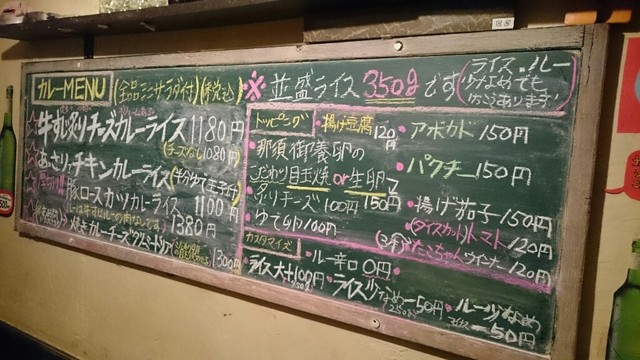 カレーMENU (全品ミニサラダ付) (税込)
※ 並盛ライス 350gです
ライス・ルー
少なめでも
牛すじ炙りチーズカレーライス 1180円
(チーズなし1080円)
あさりとチキンカレーライス (半分ゆで玉子付)
1100円
豚ロースカツカレーライス
1380円
焼きカレーチーズクリームドリア
1300円
トッピング
・揚げ豆腐 120円
・那須御養卵の
こだわり目玉焼 or 生卵
150円
・炙りチーズ 100円
・ゆで卵 100円
・アボカド 150円
・パクチー 150円
・揚げ茄子 150円
(ダイスカット)トマト 120円
(3本)たこちゃんウインナー 120円
カスタマイズ
・ルー辛口 0円
・ライス大 +100円
・ライス少なめ -50円
・ルー少なめ
-50円